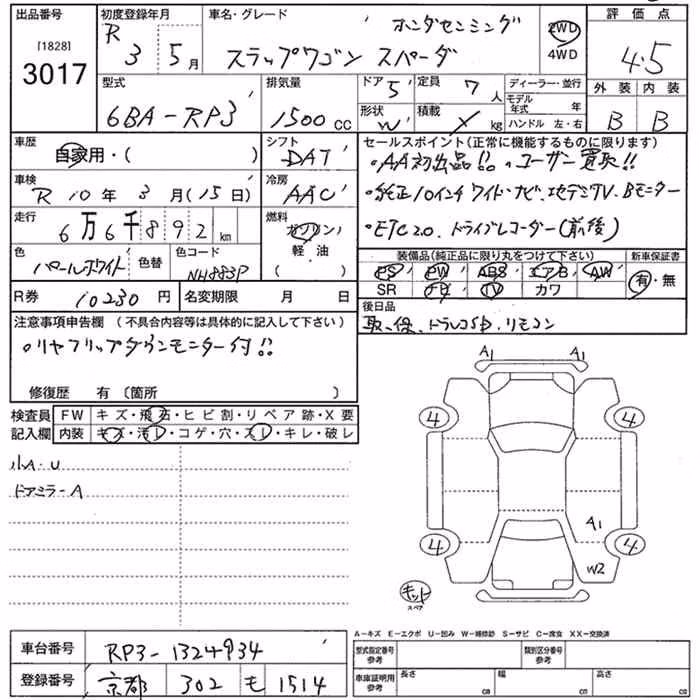 出品番号 初度登録年月 車名・グレード 評価点
[1828] R ホンダセンシング 2WD
3017 3 5月 ステップワゴン スパーダ 4WD 4.5
型式 排気量 ドア 5 定員 7人 ディーラー・並行 外装 内装
6BA-RP3 1500cc 形状 W 積載 kg モデル年式 年 ハンドル 左・右 B B
車歴 シフト セールスポイント(正常に機能するものに限ります)
自家用・( ) DAT ・AA初出品!! ・ユーザー買取!!
車検 冷房 ・純正10インチワイド・ナビ、フルセグTV、Bモニター
R10年3月(15日) AAC
走行 燃料 ・ETC2.0、ドライブレコーダー(前後)
6万6千892km ガソリン
色 色替 色コード 軽油 装備品(純正品に限り丸をつけて下さい) 新車保証書
パールホワイト NH883P ( ) PS PW ABS エアB AW 有・無
SR ナビ TV カワ
R券 10230円 名変期限 月 日 後日品
注意事項申告欄 (不具合内容等は具体的に記入して下さい) 取、保、ドラレコSD、リモコン
・リヤフリップダウンモニター付!!
修復歴 有〔箇所 〕
A1 A1
検査員 FW キズ・飛石・ヒビ割・リペア跡・X要
記入欄 内装 キズ・汚レ・コゲ・穴・スレ・キレ・破レ
4 4
小A・U
ドアミラーA
A1
4 4
W2
キット
スペア
A-キズ E-エクボ U-凹み W-補修跡 S-サビ C-腐食 XX-交換済
車台番号 RP3-1324934 型式指定番号 参考 類別区分番号 参考
登録番号 京都 302 モ 1514 車庫証明用 参考 長さ cm 幅 cm 高さ cm